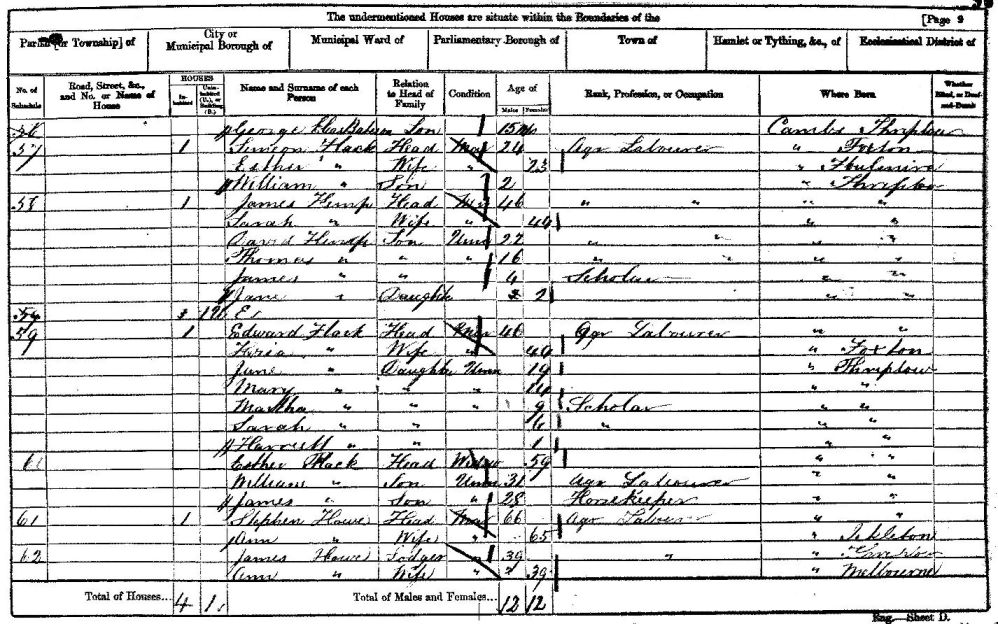 The undermentioned Houses are situate within the Boundaries of the
[Page 9
Parish [or Township] of
City or Municipal Borough of
Municipal Ward of
Parliamentary Borough of
Town of
Hamlet or Tything, &c., of
Ecclesiastical District of
No. of Schedule
Road, Street, &c., and No. or Name of House
HOUSES
Inhabited
Uninhabited (U.), or Building (B.)
Name and Surname of each Person
Relation to Head of Family
Condition
Age of
Males
Females
Rank, Profession, or Occupation
Where Born
Whether Blind, or Deaf-and-Dumb
56 George Son 15 Cambs Thriplow
57 1 Simeon Flack Head Mar 24 Agr Labourer " Foxton
Esther " Wife " 23 "
William " Son 2 " Thriplow
58 1 James Head Mar 46 " " " "
Sarah " Wife " 49 " "
David Son Unm 22 " " " "
Thomas " " " 16 " " " "
James " " 4 Scholar " "
Jane " Daughter 2 " "
59 1 Edward Flack Head Mar 46 Agr Labourer " "
" Wife " 44 " Foxton
Jane " Daughter Unm 19 " Thriplow
Mary " " " 14 " "
Martha " " " 9 Scholar " "
Sarah " " 6 " " "
Harriett " " 1 " "
Esther Flack Head Widow 59 " "
William " Son Unm 31 Agr Labourer " "
James " Son " 28 Horsekeeper " "
61 1 Stephen Howe Head Mar 66 Agr Labourer " "
Ann " Wife " 65 " Ickleton
62 James Howe Lodger " 39 " "
Ann " Wife " 39 " Melbourne
Total of Houses... 4 1
Total of Males and Females... 12 12
Eng.—Sheet D.